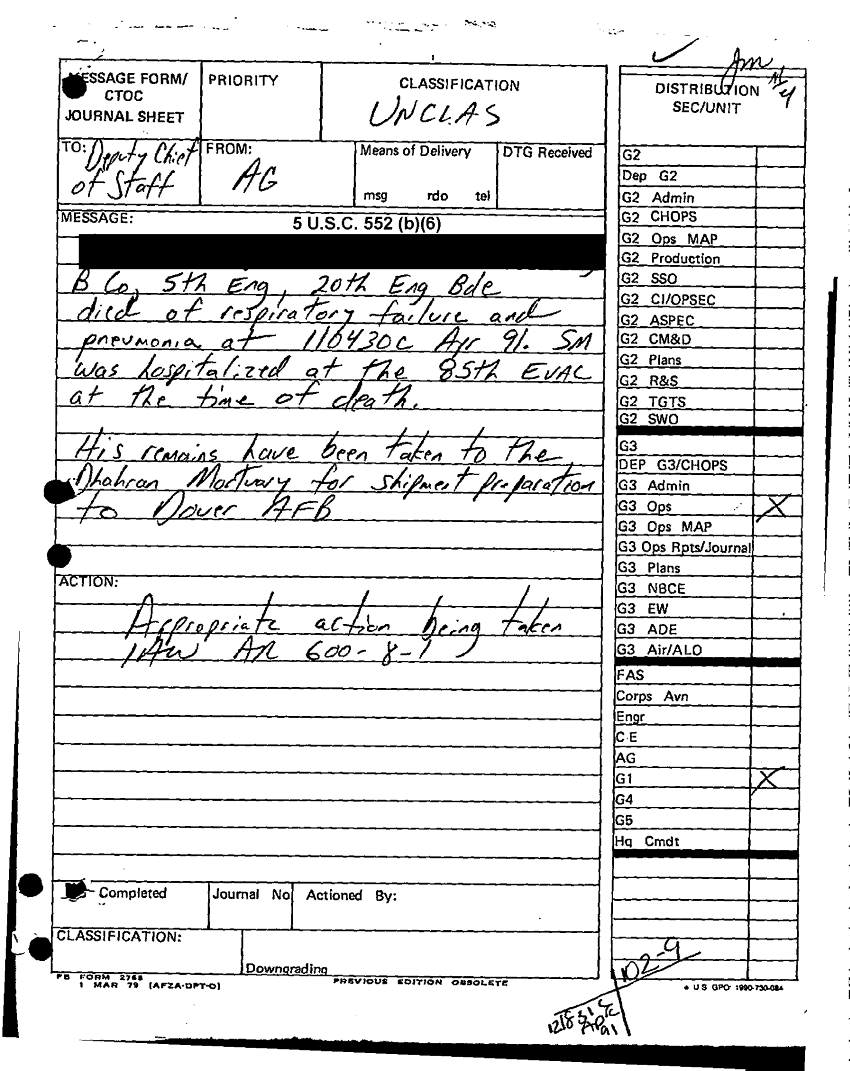 MESSAGE FORM/
CTOC
JOURNAL SHEET
PRIORITY
CLASSIFICATION
UNCLAS
TO: Deputy Chief
of Staff
FROM:
AG
Means of Delivery
msg rdo tel
DTG Received
MESSAGE:
5 U.S.C. 552 (b)(6)
B Co, 5th Eng, 20th Eng Bde
died of respiratory failure and
pneumonia at 110430C Apr 91. SM
was hospitalized at the 85th EVAC
at the time of death.
His remains have been taken to the
Dhahran Mortuary for shipment preparation
to Dover AFB
ACTION:
Appropriate action being taken
IAW AR 600-8-1
Completed
Journal No
Actioned By:
CLASSIFICATION:
Downgrading
FB FORM 2768
1 MAR 79 (AFZA-DPT-O)
PREVIOUS EDITION OBSOLETE
DISTRIBUTION
SEC/UNIT
G2
Dep G2
G2 Admin
G2 CHOPS
G2 Ops MAP
G2 Production
G2 SSO
G2 CI/OPSEC
G2 ASPEC
G2 CM&D
G2 Plans
G2 R&S
G2 TGTS
G2 SWO
G3
DEP G3/CHOPS
G3 Admin
G3 Ops X
G3 Ops MAP
G3 Ops Rpts/Journal
G3 Plans
G3 NBCE
G3 EW
G3 ADE
G3 Air/ALO
FAS
Corps Avn
Engr
CE
AG
G1 X
G4
G5
Hq Cmdt
102-9
U S GPO 1990-730-084